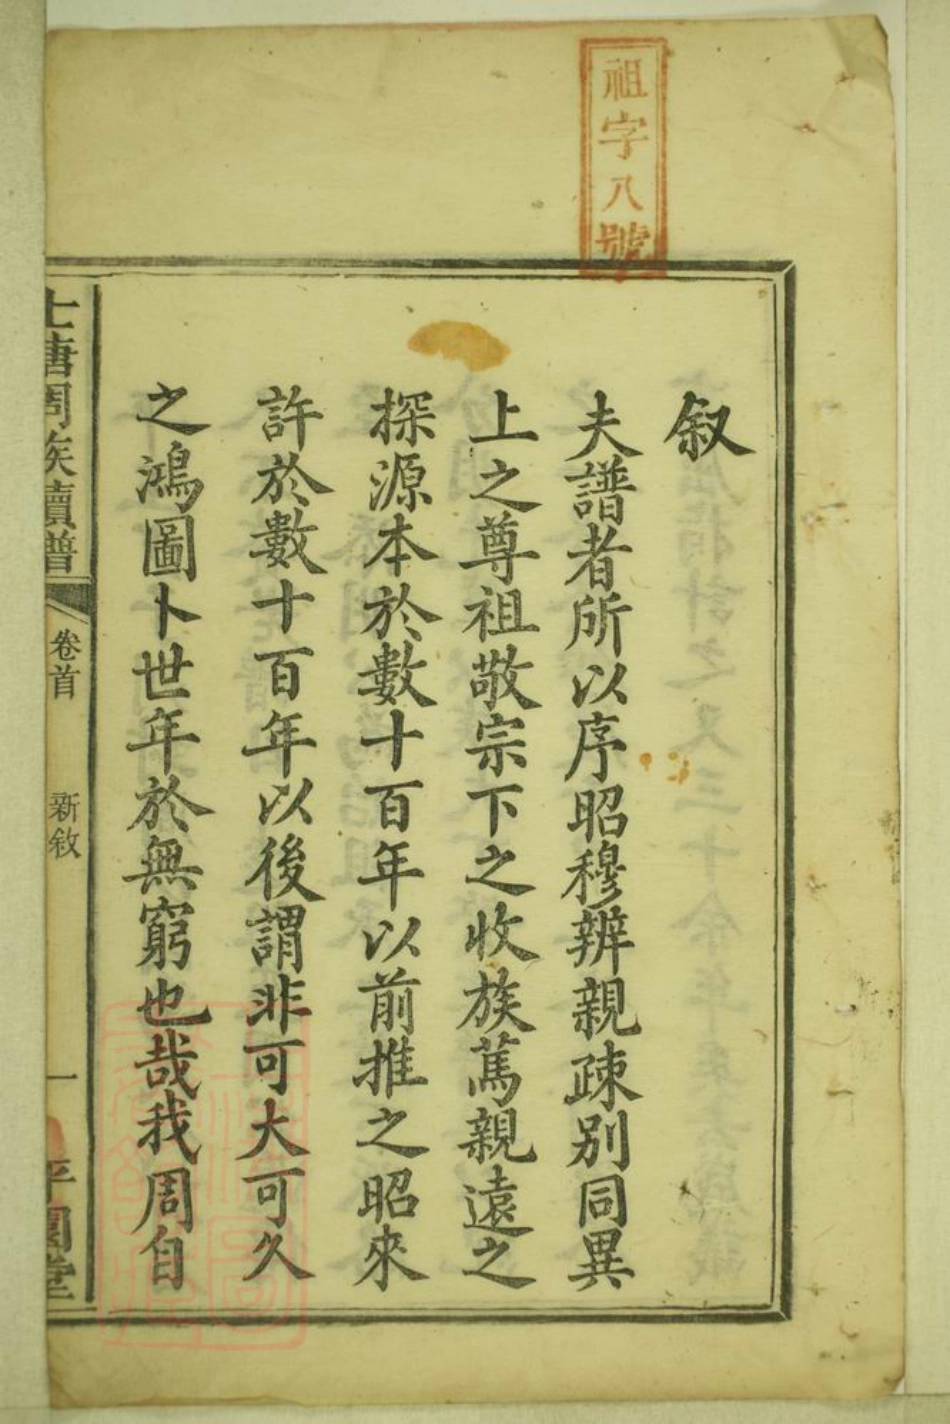 祖字八號
叙
夫譜者所以序昭穆辨親疎別同異
上之尊祖敬宗下之收族篤親遠之
探源本於數十百年以前推之昭來
許於數十百年以後謂非可大可久
之鴻圖卜世年於無窮也哉我周自
七塘周族續譜
卷首
新敘
一